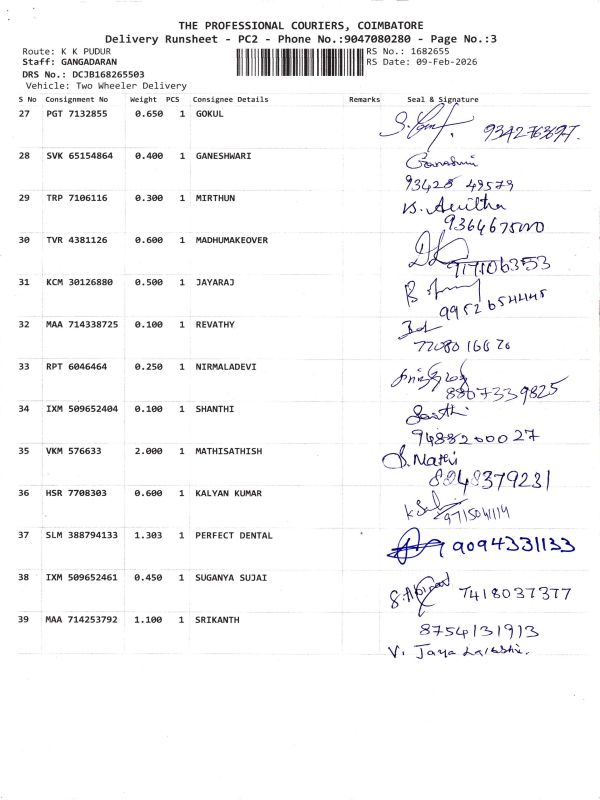 THE PROFESSIONAL COURIERS, COIMBATORE
Delivery Runsheet - PC2 - Phone No.:9047080280 - Page No.:3
Route: K K PUDUR RS No.: 1682655
Staff: GANGADARAN RS Date: 09-Feb-2026
DRS No.: DCJB168265503
Vehicle: Two Wheeler Delivery
S No Consignment No Weight PCS Consignee Details Remarks Seal & Signature
27 PGT 7132855 0.650 1 GOKUL
28 SVK 65154864 0.400 1 GANESHWARI
93428 49579
29 TRP 7106116 0.300 1 MIRTHUN
30 TVR 4381126 0.600 1 MADHUMAKEOVER
31 KCM 30126880 0.500 1 JAYARAJ
32 MAA 714338725 0.100 1 REVATHY
33 RPT 6046464 0.250 1 NIRMALADEVI
8807339825
34 IXM 509652404 0.100 1 SHANTHI
9488200027
35 VKM 576633 2.000 1 MATHISATHISH
S. Mathi
8248379231
36 HSR 7708303 0.600 1 KALYAN KUMAR
37 SLM 388794133 1.303 1 PERFECT DENTAL 9094331133
38 IXM 509652461 0.450 1 SUGANYA SUJAI 7418037377
39 MAA 714253792 1.100 1 SRIKANTH 8754131913
V. Jaya